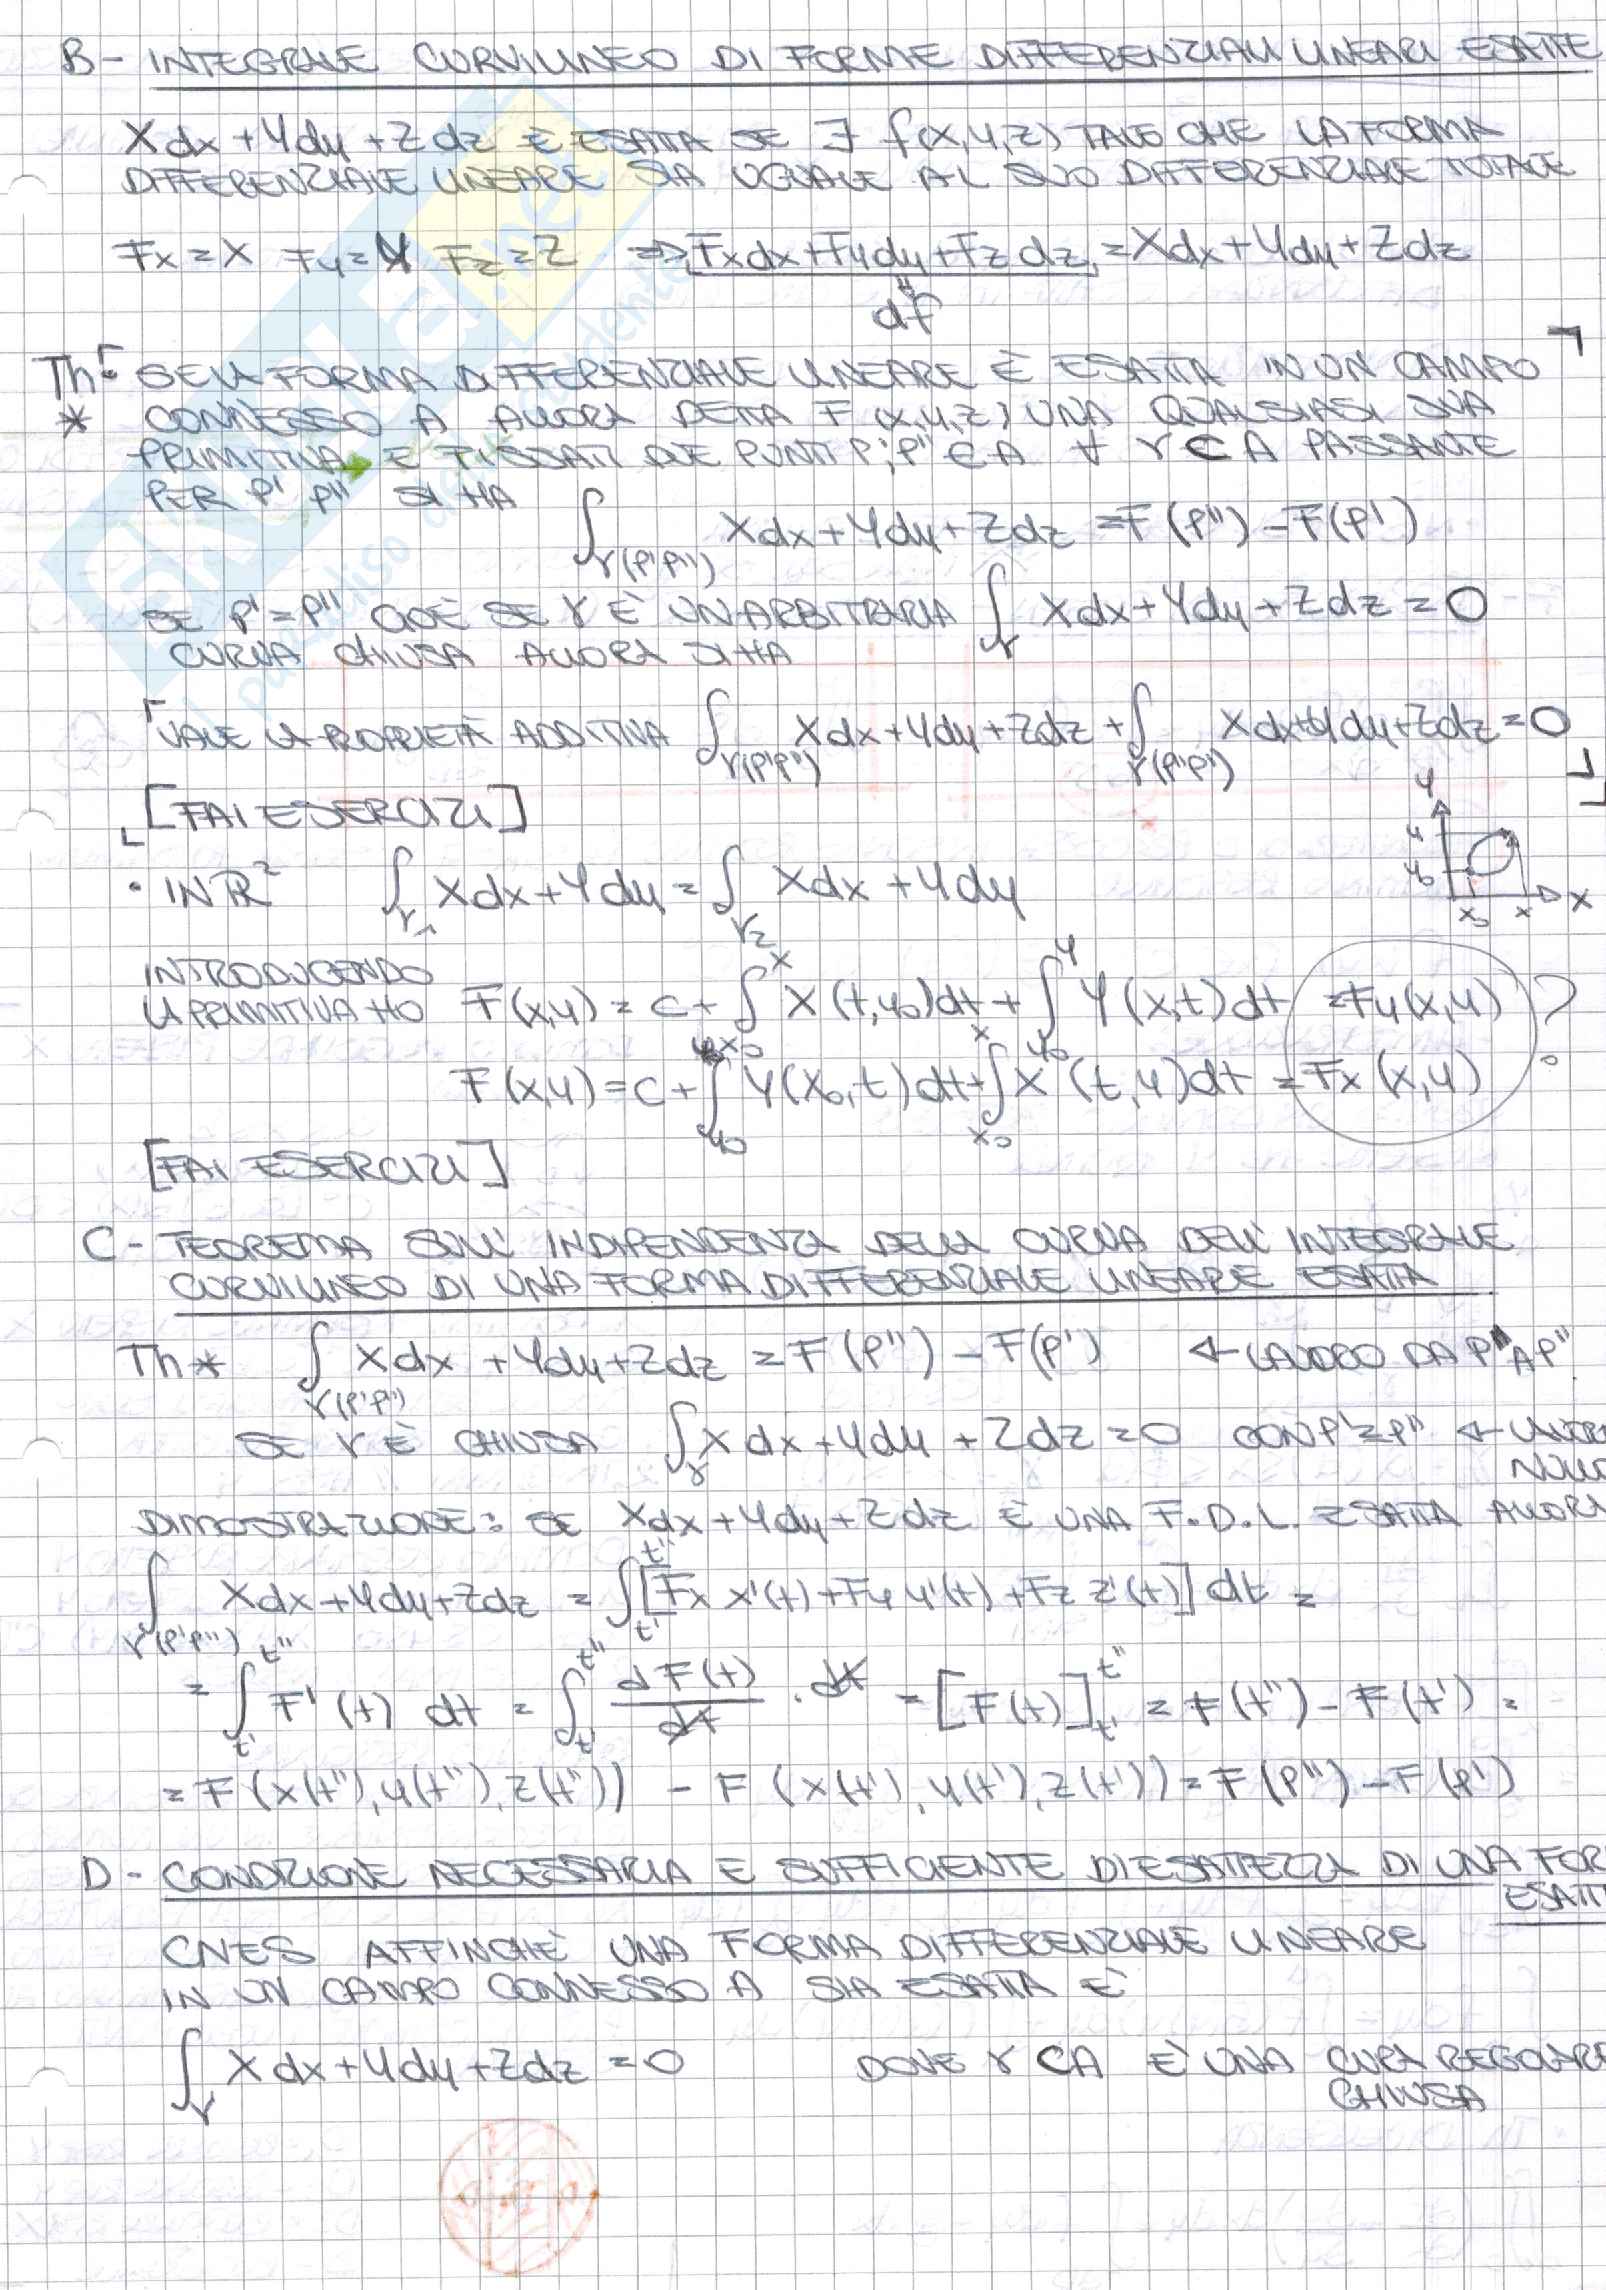 B - INTEGRALE CURVILINEO DI FORME DIFFERENZIALI LINEARI ESATTE
Xdx + Ydy + Zdz È ESATTA SE ∃ f(x,y,z) TALE CHE LA FORMA
DIFFERENZIALE LINEARE SIA UGUALE AL SUO DIFFERENZIALE TOTALE
Fx = X Fy = Y Fz = Z => Fxdx + Fydy + Fzdz = Xdx + Ydy + Zdz
"
df
Th: SE LA FORMA DIFFERENZIALE LINEARE È ESATTA IN UN CAMPO
* CONNESSO A ALLORA DETTA F(x,y,z) UNA QUALSIASI SUA
PRIMITIVA E FISSATI DUE PUNTI P', P'' ∈ A ∀ γ ⊂ A PASSANTE
PER P' P'' SI HA
∫γ(P'P'') Xdx + Ydy + Zdz = F(P'') - F(P')
SE P' = P'' CIOÈ SE γ È UN ARBITRARIA ∫γ Xdx + Ydy + Zdz = 0
CURVA CHIUSA ALLORA SI HA
VALE LA PROPRIETÀ ADDITIVA ∫γ(P'P'') Xdx + Ydy + Zdz + ∫γ(P''P') Xdx + Ydy + Zdz = 0
[FAI ESERCIZI]
Y
y
y0
x0 x X
• IN R² ∫γ1 Xdx + Ydy = ∫γ2 Xdx + Ydy
INTRODUCENDO
LA PRIMITIVA HO F(x,y) = c + ∫x0^x X(t,y0)dt + ∫y0^y Y(x,t)dt = Fy(x,y) ?
F(x,y) = c + ∫y0^y Y(x0,t)dt + ∫x0^x X(t,y)dt = Fx(x,y)
[FAI ESERCIZI]
C - TEOREMA SULL' INDIPENDENZA DELLA CURVA DELL' INTEGRALE
CURVILINEO DI UNA FORMA DIFFERENZIALE LINEARE ESATTA
Th * ∫γ(P'P'') Xdx + Ydy + Zdz = F(P'') - F(P') ← LAVORO DA P' A P''
SE γ È CHIUSA ∫γ Xdx + Ydy + Zdz = 0 CON P' = P'' ←
DIMOSTRAZIONE: SE Xdx + Ydy + Zdz È UNA F.D.L. ESATTA ALLORA
∫γ(P'P'') Xdx + Ydy + Zdz = ∫t'^t'' [Fx x'(t) + Fy y'(t) + Fz z'(t)] dt =
= ∫t'^t'' F'(t) dt = ∫t'^t'' dF(t)/dt · dt = [F(t)]t'^t'' = F(t'') - F(t') =
= F(x(t''), y(t''), z(t'')) - F(x(t'), y(t'), z(t')) = F(P'') - F(P')
D - CONDIZIONE NECESSARIA E SUFFICIENTE DI ESATTEZZA DI UNA FOR
ESATT
CNES AFFINCHÈ UNA FORMA DIFFERENZIALE LINEARE
IN UN CAMPO CONNESSO A SIA ESATTA È
∫γ Xdx + Ydy + Zdz = 0 DOVE γ ⊂ A È UNA CURVA REGOLARE
CHIUSA